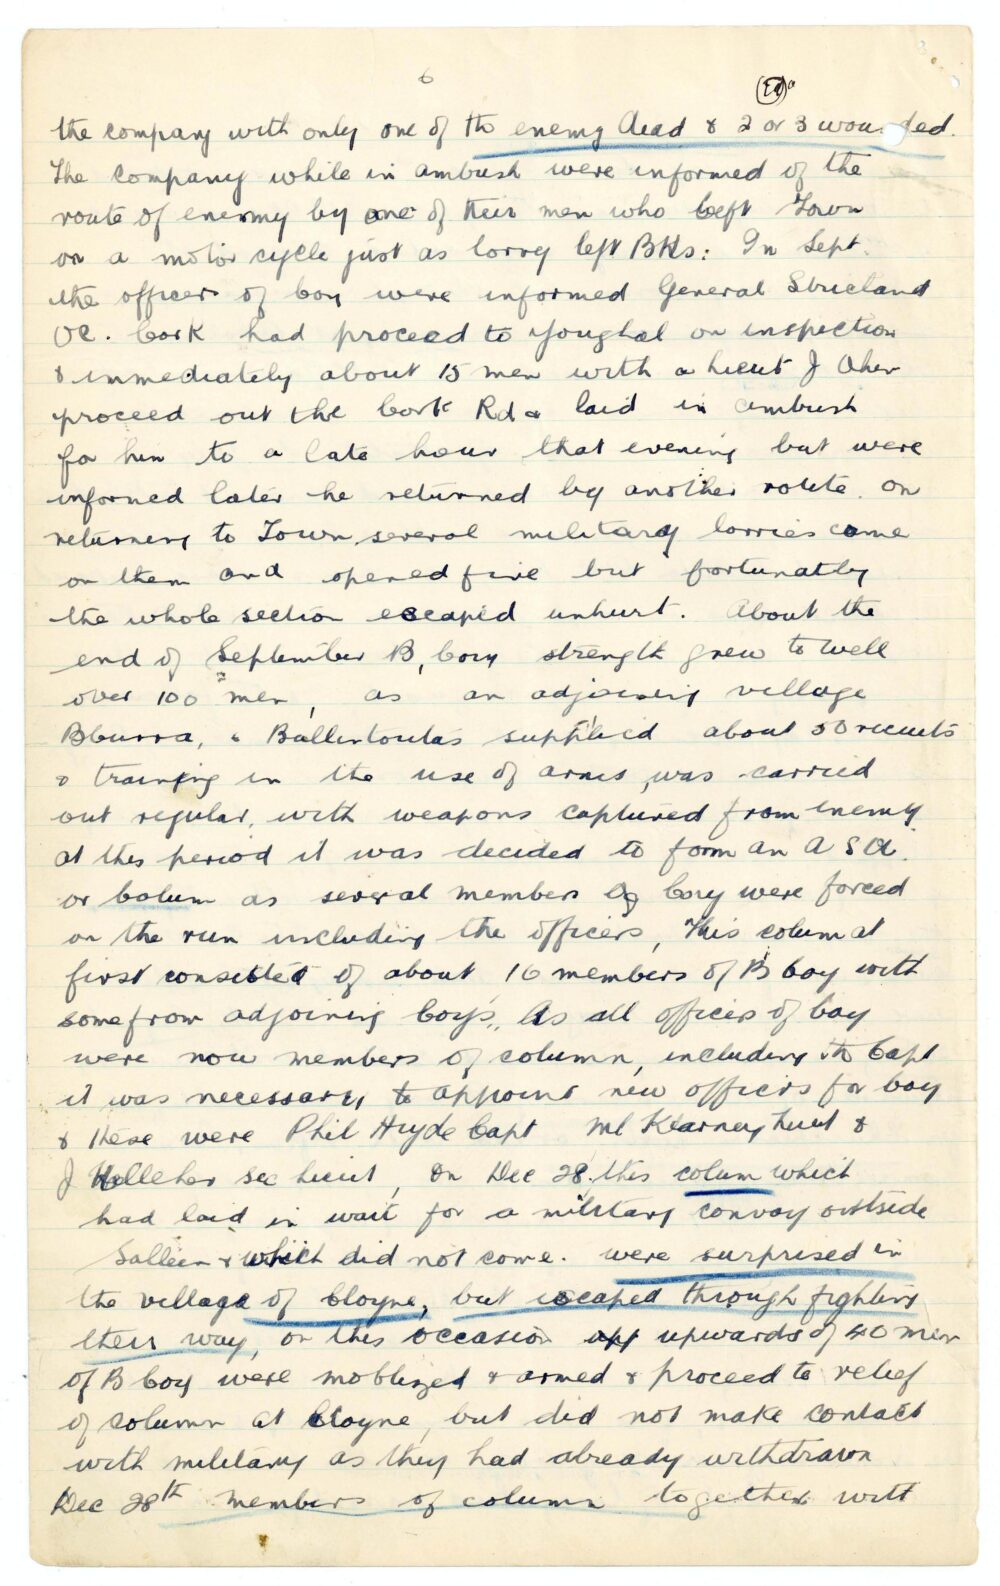 6
the company with only one of the enemy dead & 2 or 3 wounded.
The company while in ambush were informed of the
route of enemy by one of their men who left Town
on a motor cycle just as lorry left BKs: In Sept.
the officers of Coy were informed General Stricland
OC. Cork had proceed to Youghal on inspection
& immediately about 15 men with a Lieut J Aher
proceed out the Cork Rd & laid in ambush
for him to a late hour that evening but were
informed later he returned by another route. on
returning to Town, several military lorries came
on them and opened fire but fortunatly
the whole section escaped unhurt. About the
end of September B, Coy strength grew to well
over 100 men, as an adjoining village
Bburra, & Ballintoulas supplied about 50 recruits
& training in the use of arms, was carried
out regular, with weapons captured from enemy
at this period it was decided to form an A S U.
or Colum as several members of Coy were forced
on the run including the officers, This colum at
first consisted of about 16 members of B Coy with
some from adjoining Coy's,, As all officers of Coy
were now members of column, including the Capt
it was necessary to appoint new officers for Coy
& these were Phil Hyde Capt Ml Kearney Lieut &
J Kelleher sec Lieut, On Dec 28. this colum which
had laid in wait for a military convoy outside
Salleen & which did not come. were surprised in
the village of Cloyne, but escaped through fighting
their way, on this occasion upp upwards of 40 men
of B Coy were moblized & armed & proceed to relief
of column at Cloyne, but did not make contact
with military as they had already withdrawn
Dec 28th members of column together with